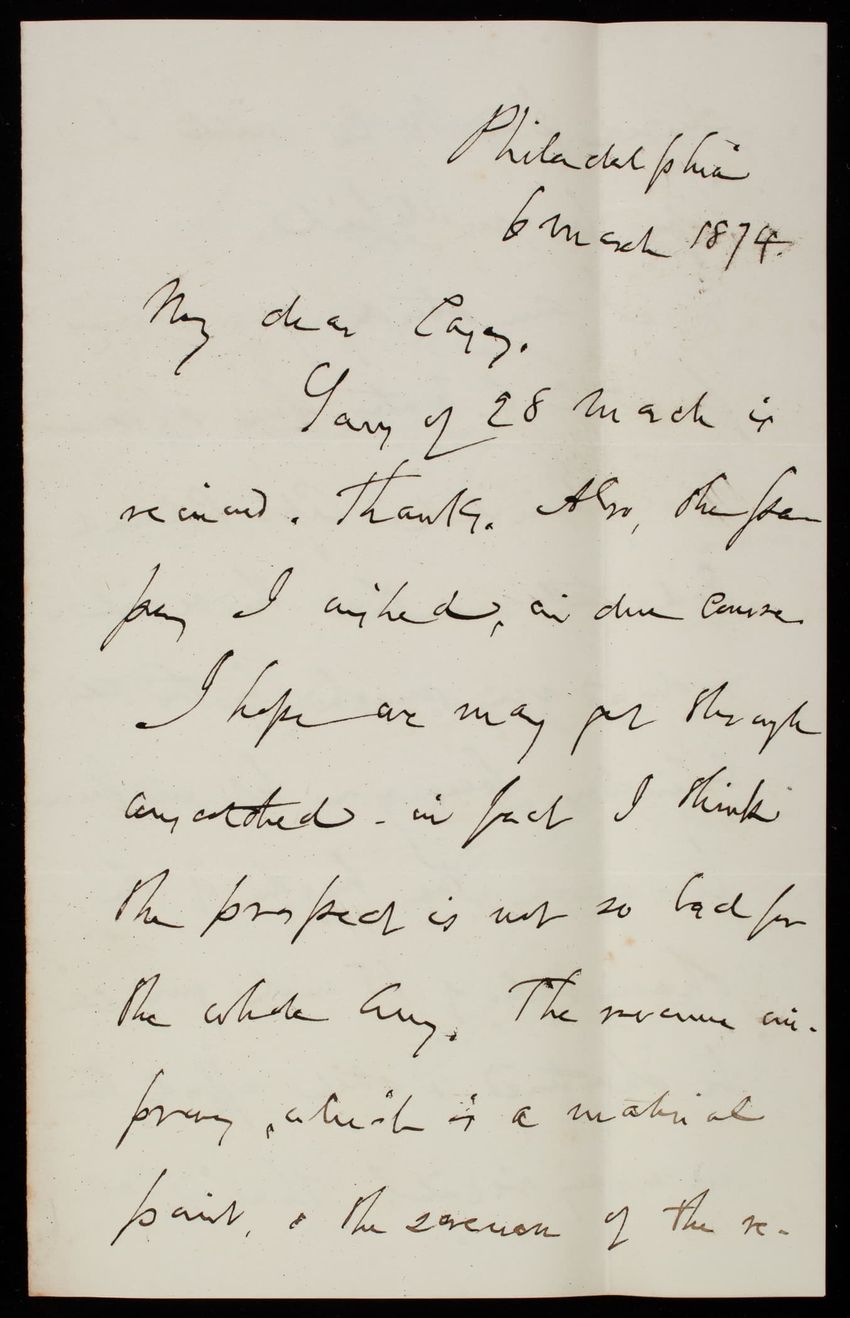 Philadelphia
6 March 1874.
My dear Casey.
Yours of 28 March is
received. Thanks. Also, the pa-
pers I wished, in due course.
I hope we may get through
unscathed - in fact I think
the prospect is not so bad for
the whole Army. The revenue im-
proves, which is a material
point, & the of the re-